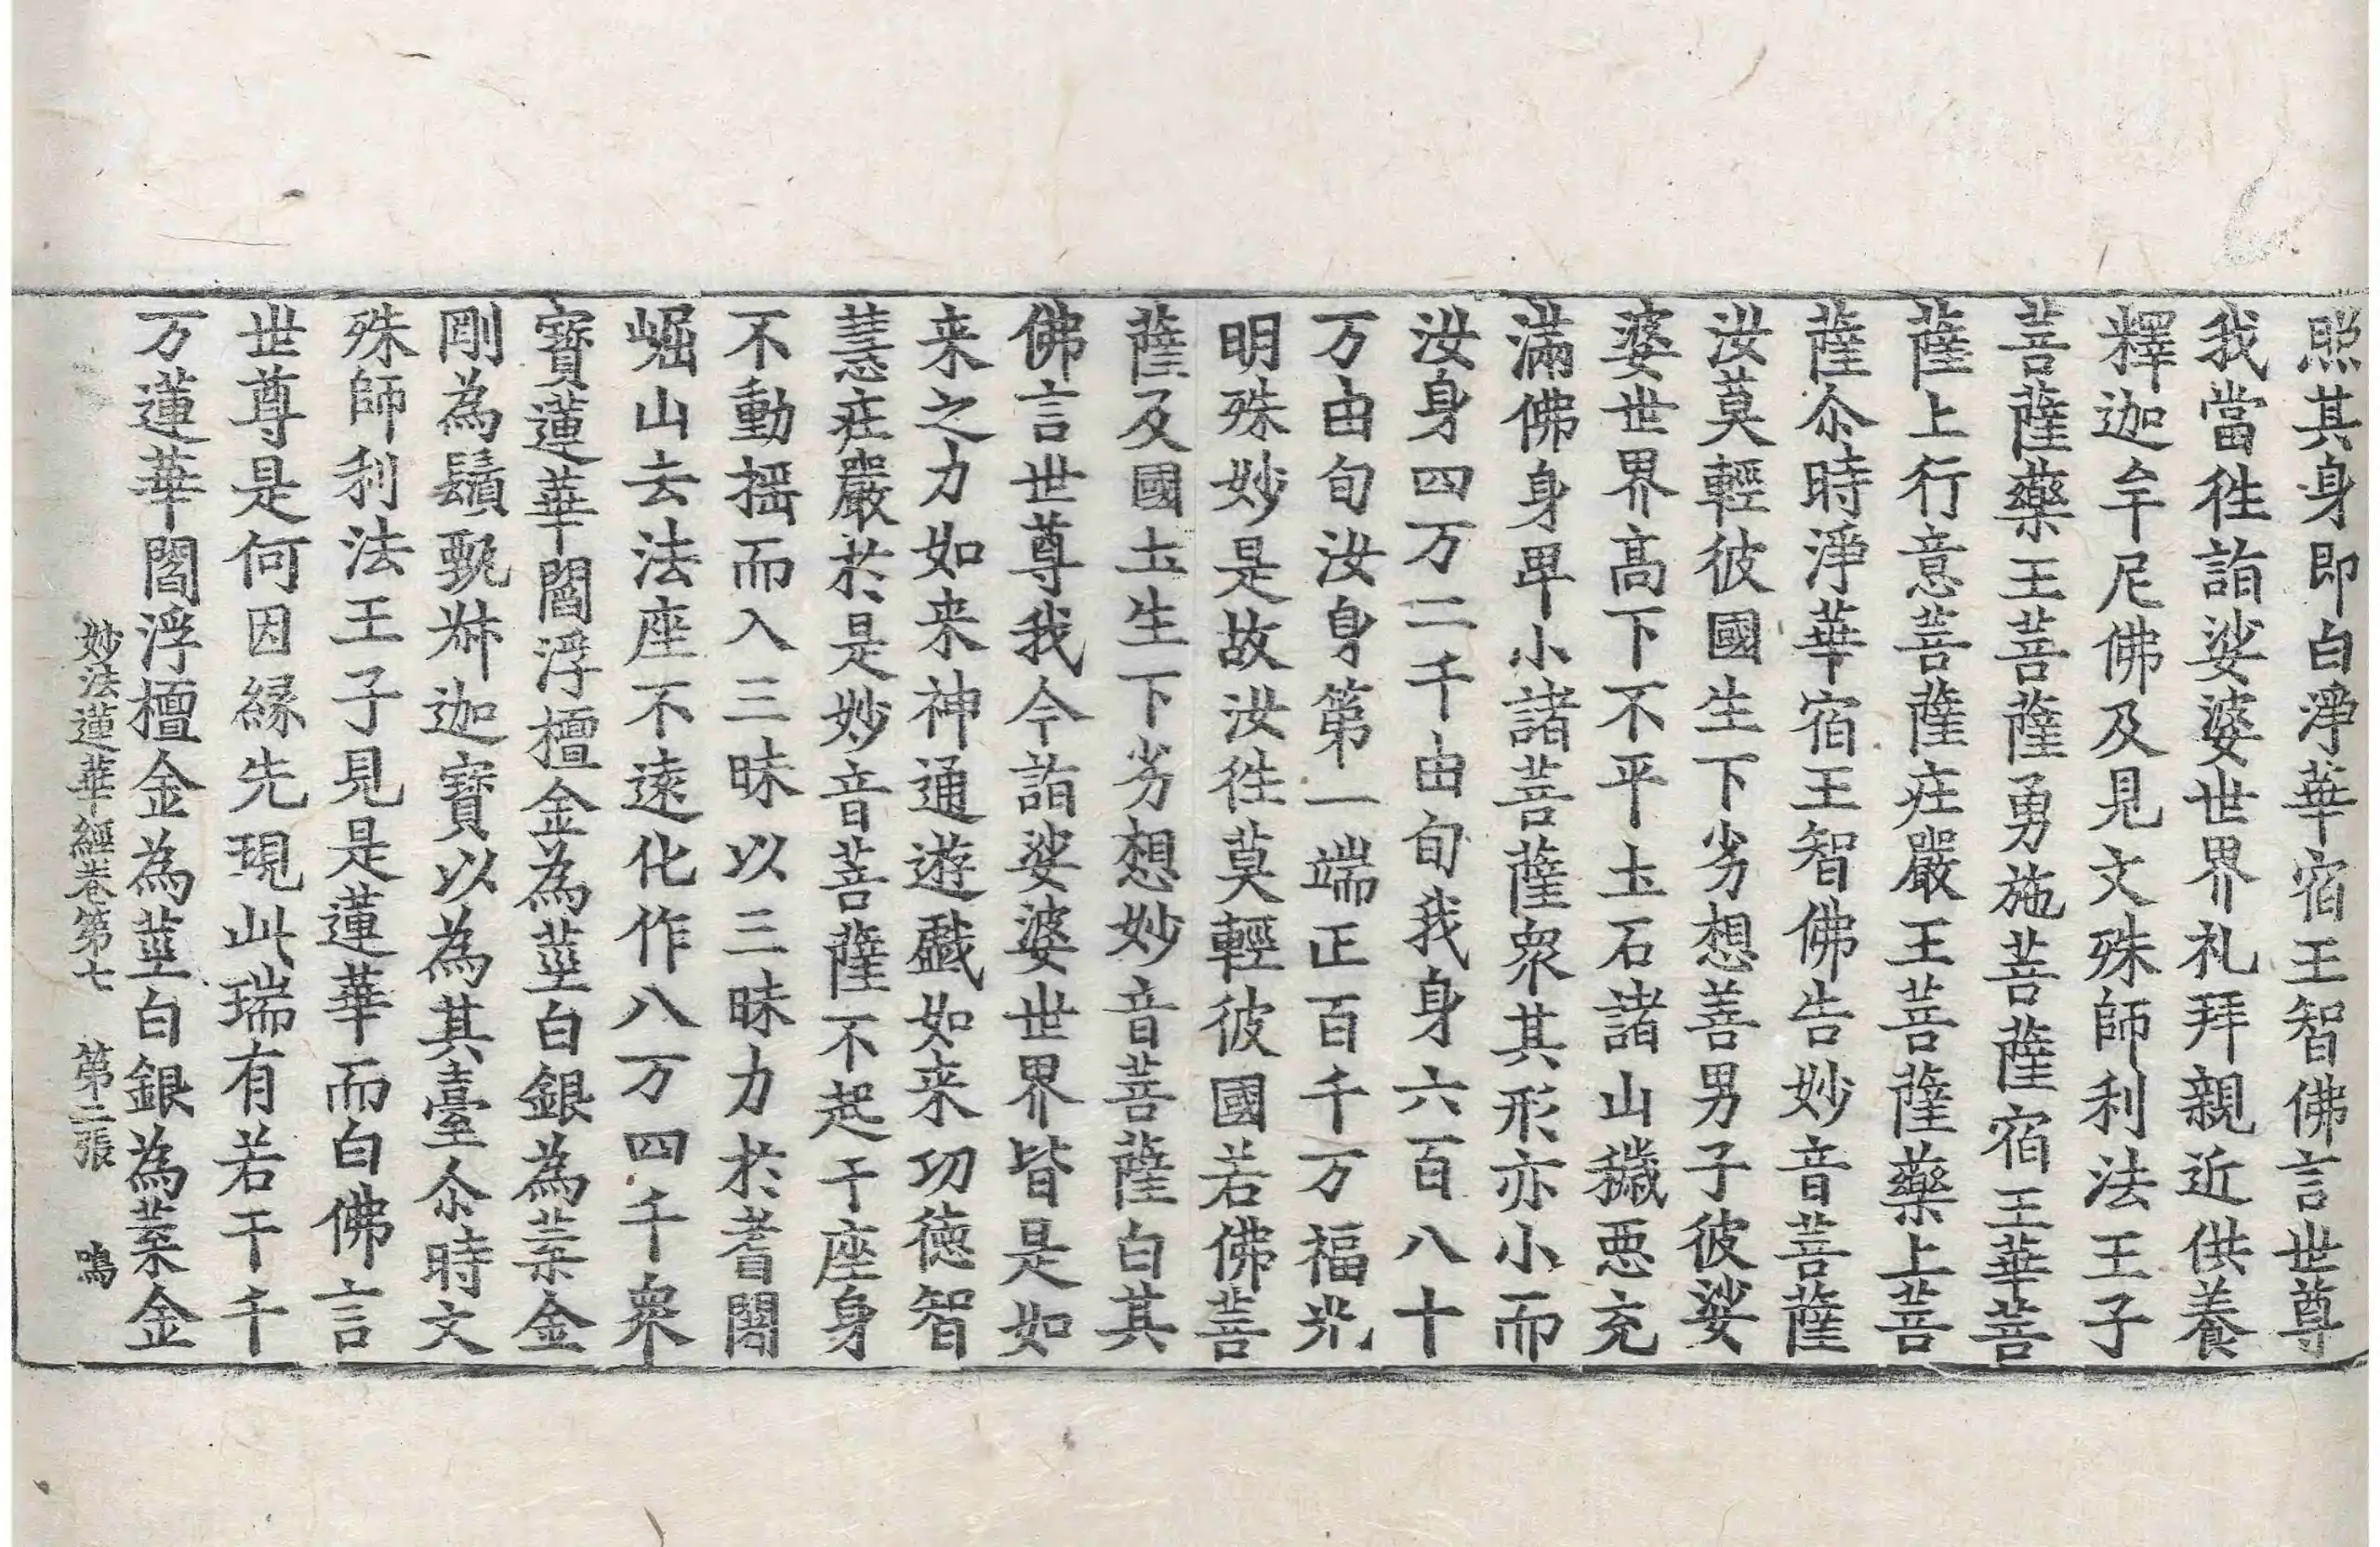 照其身即白淨華宿王智佛言世尊
我當徃詣娑婆世界礼拜親近供養
釋迦牟尼佛及見文殊師利法王子
菩薩藥王菩薩勇施菩薩宿王華菩
薩上行意菩薩㽵嚴王菩薩藥上菩
薩尒時淨華宿王智佛告妙音菩薩
汝莫輕彼國生下劣想善男子彼娑
婆世界高下不平圡石諸山穢悪充
滿佛身卑小諸菩薩衆其形亦小而
汝身四万二千由旬我身六百八十
万由旬汝身第一端正百千万福光
明殊妙是故汝徃莫輕彼國若佛菩
薩及國圡生下劣想妙音菩薩白其
佛言世尊我今詣娑婆世界皆是如
来之力如来神通遊戲如来功德智
慧㽵嚴於是妙音菩薩不起于座身
不動摇而入三昧以三昧力於耆闍
崛山去法座不逺化作八万四千衆
寶蓮華閻浮檀金為莖白銀為葉金
剛為鬚甄叔迦寶以為其臺尒時文
殊師利法王子見是蓮華而白佛言
世尊是何因縁先現此瑞有若干千
万蓮華閻浮檀金為莖白銀為葉金
妙法蓮華經卷第七 第二張 鳴